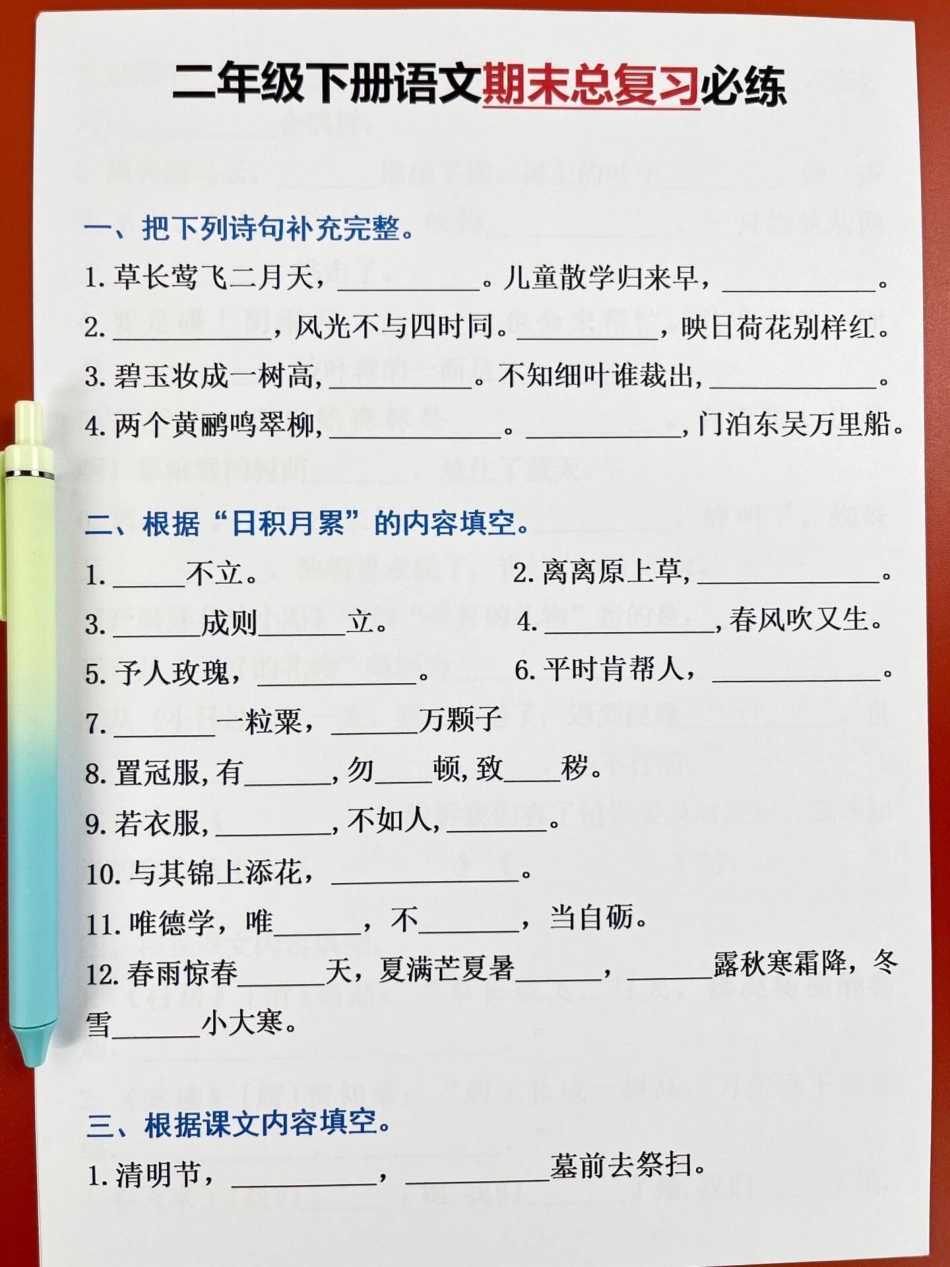 二年级下册语文期末总复习必练
一、把下列诗句补充完整。
1. 草长莺飞二月天，__________。儿童散学归来早，___________。
2. ___________，风光不与四时同。__________，映日荷花别样红。
3. 碧玉妆成一树高,__________。不知细叶谁裁出,____________。
4. 两个黄鹂鸣翠柳,____________。___________,门泊东吴万里船。
二、根据“日积月累”的内容填空。
1. _____不立。 2. 离离原上草,_____________。
3. ______成则______立。 4. ____________,春风吹又生。
5. 予人玫瑰，___________。 6. 平时肯帮人，____________。
7. _______一粒粟，______万颗子
8. 置冠服,有______,勿____顿,致____秽。
9. 若衣服,________,不如人,_______。
10. 与其锦上添花，_____________。
11. 唯德学，唯______，不_______，当自砺。
12. 春雨惊春______天，夏满芒夏暑______，_____露秋寒霜降，冬
雪________小大寒。
三、根据课文内容填空。
1. 清明节，__________，__________墓前去祭扫。